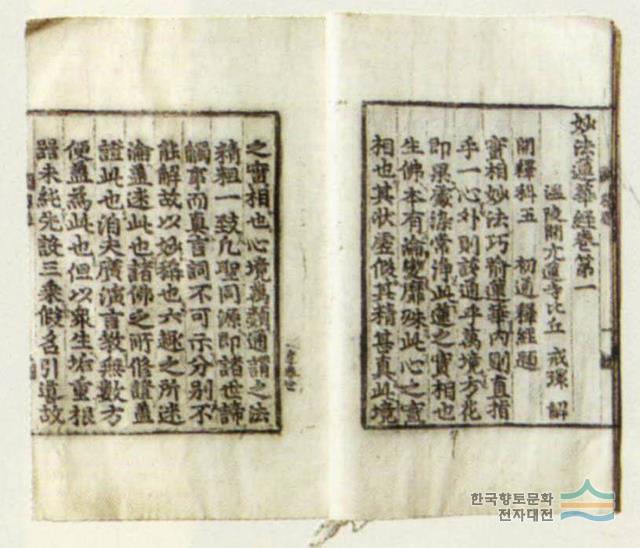 妙法蓮華經卷第一
溫陵開元蓮寺比丘 戒環 解
開釋科五 初通釋經題
實相妙法巧喻蓮華內則直指
乎一心外則該通乎萬境方花
即果處染常淨此蓮之實相也
生佛本有淪變靡殊此心之實
相也其狀虛假其精甚真此境
之實相也心境萬類通謂之法
精粗一致凡聖同源即諸世諦
觸事而真言詞不可示分別不
能解故以妙稱也六趣之所迷
淪蓋迷此也諸佛之所修證蓋
證此也洎夫廣演言教無數方
便蓋為此也但以衆生垢重根
器未純先設三乘假名引導故
한국향토문화
전자대전